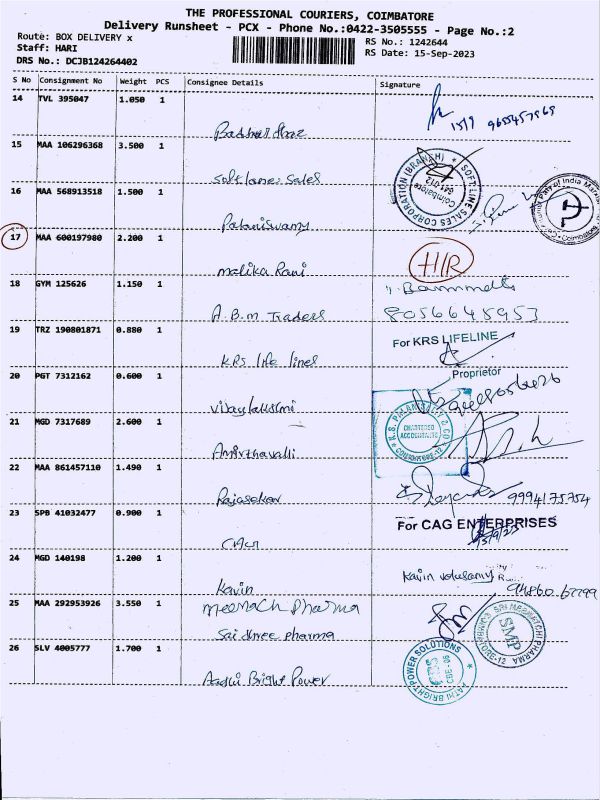 THE PROFESSIONAL COURIERS, COIMBATORE
Delivery Runsheet - PCX - Phone No.:0422-3505555 - Page No.:2
Route: BOX DELIVERY x
Staff: HARI
DRS No.: DCJB124264402
RS No.: 1242644
RS Date: 15-Sep-2023
S No Consignment No Weight PCS Consignee Details Signature
14 TVL 395047 1.050 1
15/9
15 MAA 106296368 3.500 1
Softlanes Sales
SOFT-LINE SALES CORPORATION (BRANCH)
Coimbatore
641 012
16 MAA 568913518 1.500 1
Palaniswamy
17 MAA 600197980 2.200 1
Malika Rani
H/R
18 GYM 125626 1.150 1
A.B.M Traders
8056645953
19 TRZ 190801871 0.880 1
KRS life lines
For KRS LIFELINE
Proprietor
20 PGT 7312162 0.600 1
Vijaylakshmi
21 MGD 7317689 2.600 1
Amirthavalli
CHARTERED
ACCOUNTANTS
COIMBATORE-12
22 MAA 861457110 1.490 1
Rajasekar
9994175754
23 SPB 41032477 0.900 1
CAG
For CAG ENTERPRISES
15/9/23
24 MGD 140198 1.200 1
Kavin
Kavin
25 MAA 292953926 3.550 1
Meenach Pharma
Sai Shree Pharma
SMP
26 SLV 4005777 1.700 1
Bright Power
BRIGHT POWER SOLUTIONS